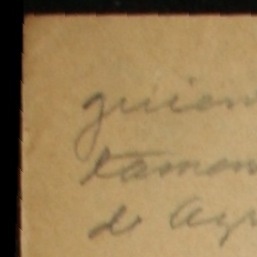 guien
tamon
de Agr